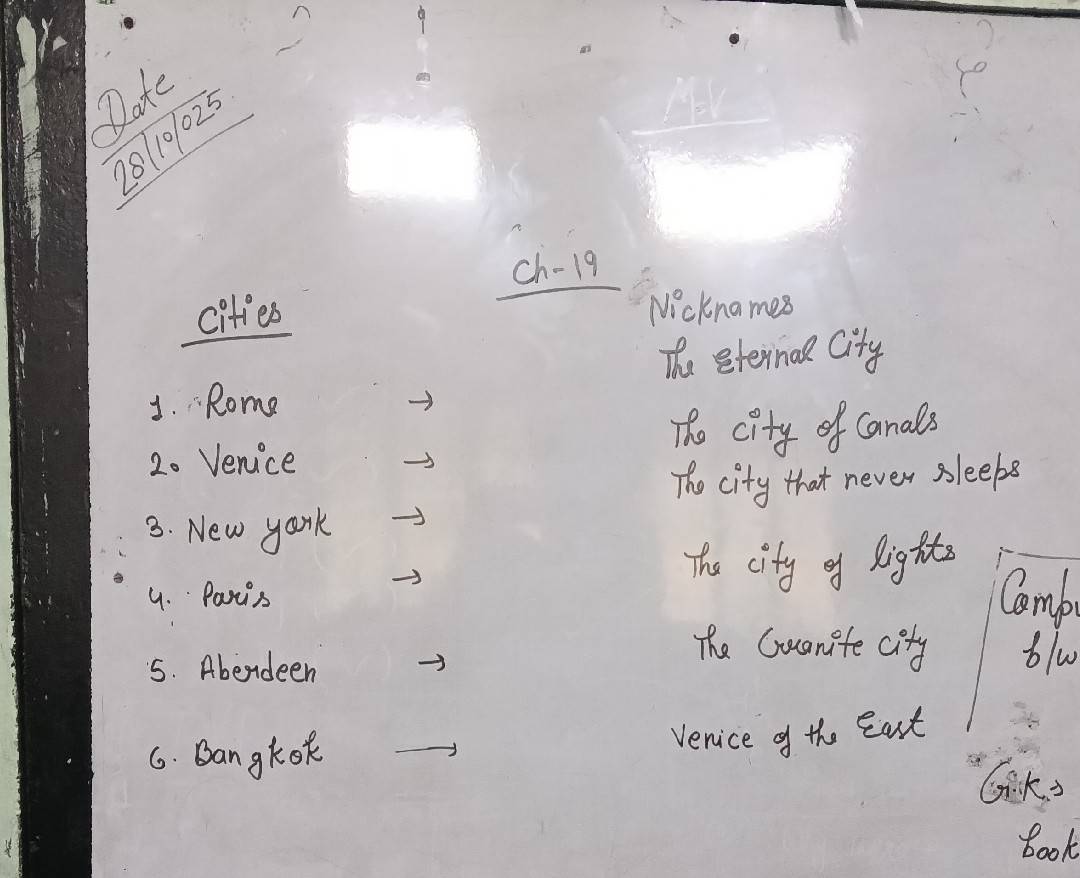 Date
28/10/025
M.V
Ch-19
Cities
Nicknames
1. Rome → The Eternal City
2. Venice → The city of Canals
3. New york → The city that never sleeps
4. Paris → The city of lights
5. Aberdeen → The Granite city
6. Bangkok → Venice of the East
b/w
G.K.
book